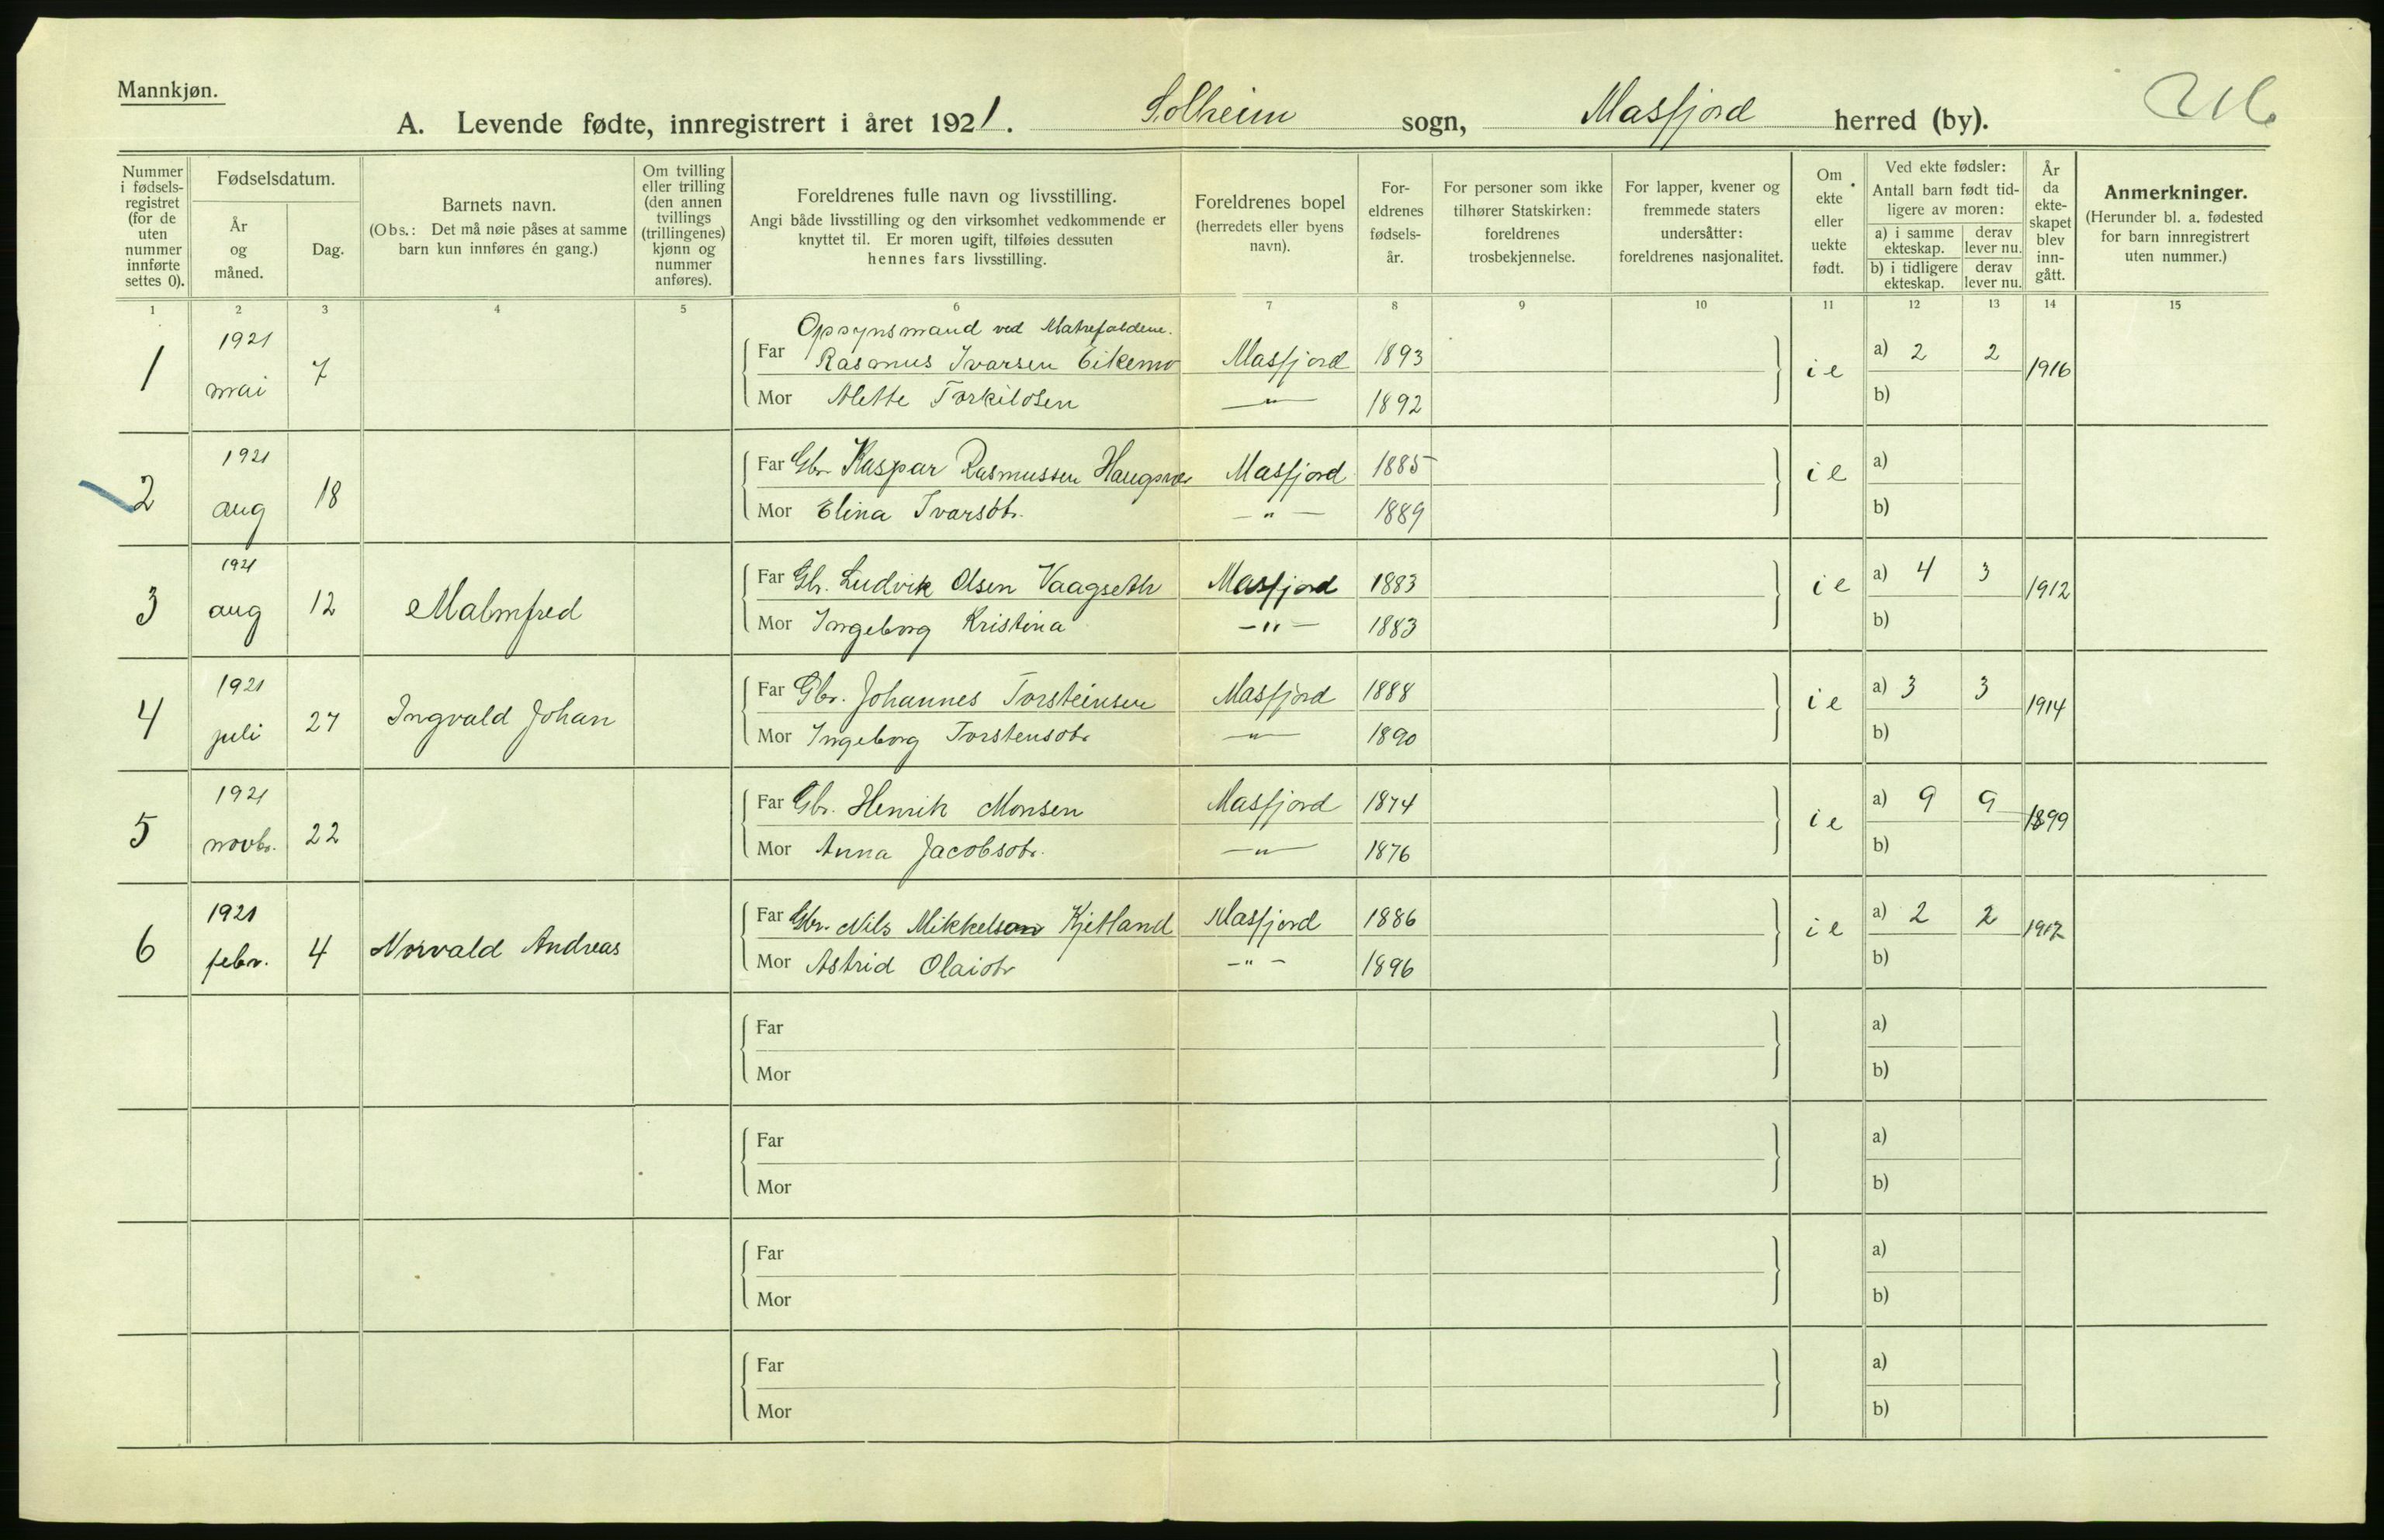 Mannkjøn.
A. Levende fødte, innregistrert i året 1921. Solheim sogn, Masfjord herred (by).
Nummer i fødsels-registret (for de uten nummer innførte settes 0).
Fødselsdatum.
År og måned.
Dag.
Barnets navn.
(Obs.: Det må nøie påses at samme barn kun innføres én gang.)
Om tvilling eller trilling (den annen tvillings (trillingenes) kjønn og nummer anføres).
Foreldrenes fulle navn og livsstilling.
Angi både livsstilling og den virksomhet vedkommende er knyttet til. Er moren ugift, tilføies dessuten hennes fars livsstilling.
Foreldrenes bopel (herredets eller byens navn).
For-eldrenes fødsels-år.
For personer som ikke tilhører Statskirken: foreldrenes trosbekjennelse.
For lapper, kvener og fremmede staters undersåtter: foreldrenes nasjonalitet.
Om ekte eller uekte født.
Ved ekte fødsler:
Antall barn født tid-ligere av moren:
a) i samme ekteskap.
derav lever nu.
b) i tidligere ekteskap.
derav lever nu.
År da ekte-skapet blev inn-gått.
Anmerkninger.
(Herunder bl. a. fødested for barn innregistrert uten nummer.)
1 2 3 4 5 6 7 8 9 10 11 12 13 14 15
Opsynsmand ved
1 1921 mai 7 Far Rasmus Ivarsen Eikemo Masfjord 1893 i e a) 2 2 1916
Mor Alette Torkildsen —"— 1892 b)
2 1921 aug 18 Far Gbr. Kaspar Rasmussen Masfjord 1885 i e a)
Mor Elina Ivarsdtr. —"— 1889 b)
3 1921 aug 12 Malmfred Far Gbr. Ludvik Olsen Vaagseth Masfjord 1883 i e a) 4 3 1912
Mor Ingeborg Kristina —"— 1883 b)
4 1921 juli 27 Ingvald Johan Far Gbr. Johannes Torsteinsen Masfjord 1888 i e a) 3 3 1914
Mor Ingeborg Torstensdtr —"— 1890 b)
5 1921 novbr. 22 Far Gbr. Henrik Monsen Masfjord 1874 i e a) 9 9 1899
Mor Anna Jacobsdtr. —"— 1876 b)
6 1921 febr. 4 Norvald Andreas Far Gbr. Nils Mikkelson Kjetland Masfjord 1886 i e a) 2 2 1917
Mor Astrid —"— 1896 b)
Far a)
Mor b)
Far a)
Mor b)
Far a)
Mor b)
Far a)
Mor b)